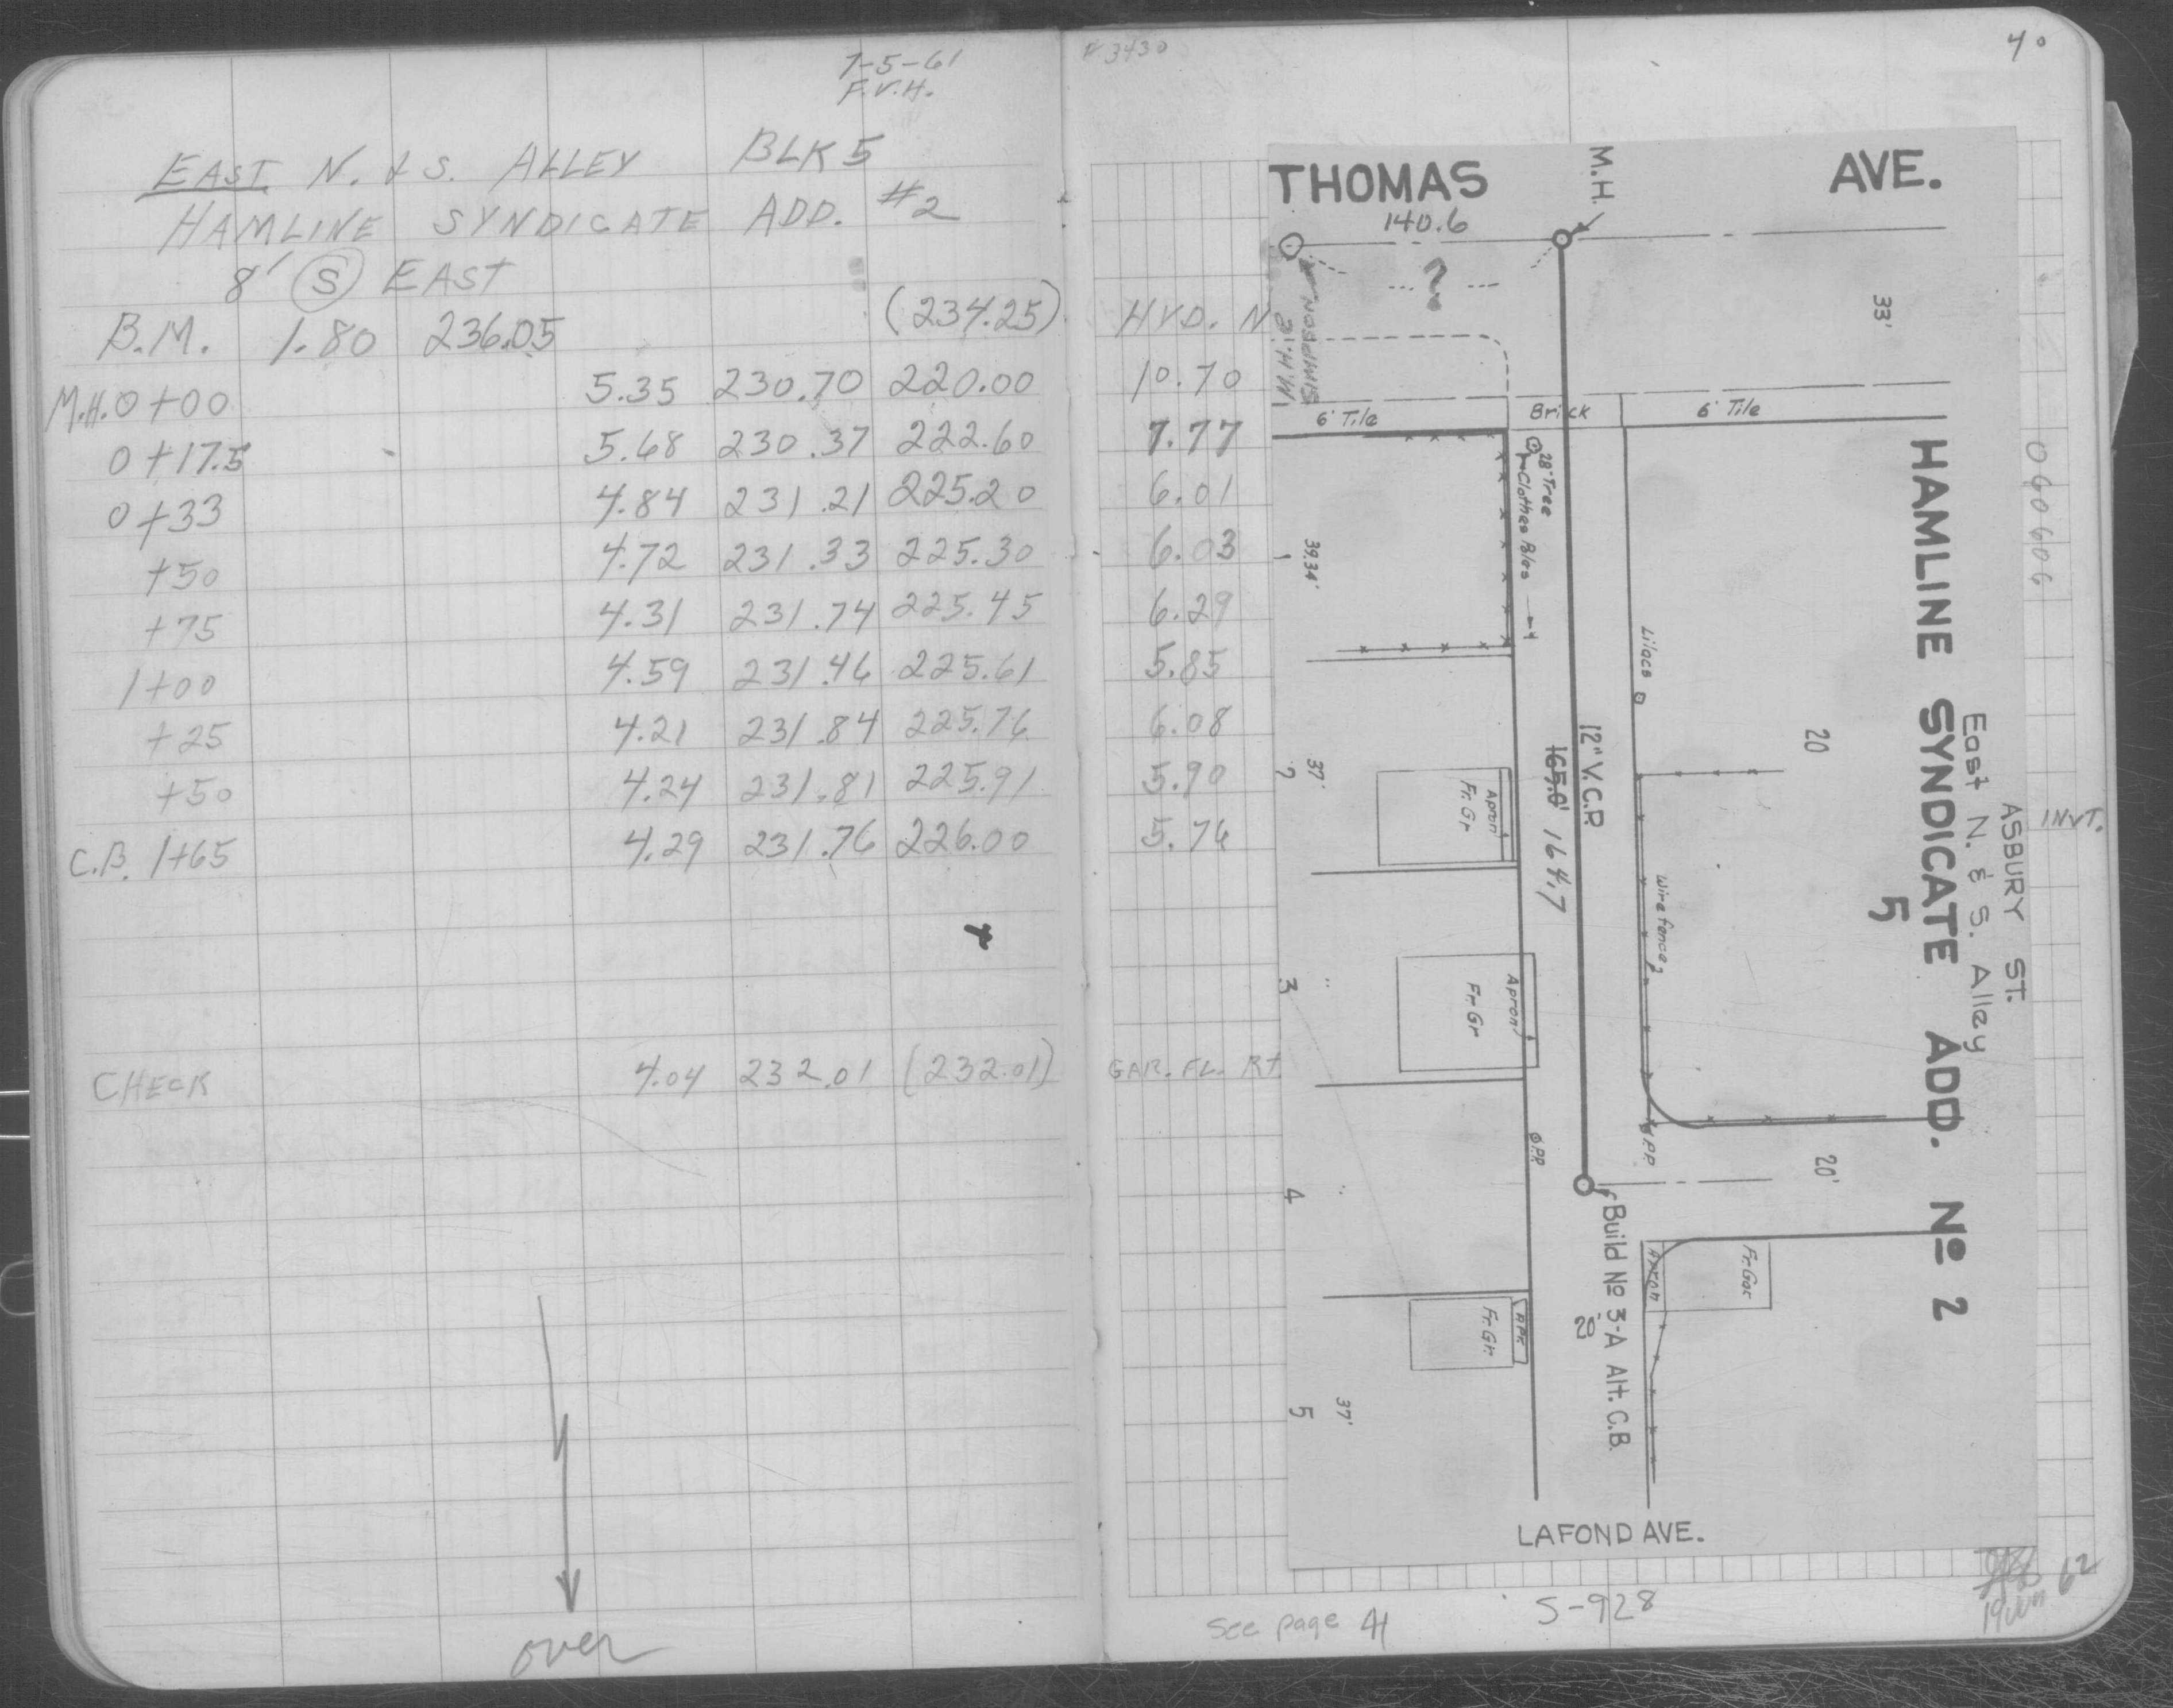 7-5-61
F.V.H.
EAST N. & S. ALLEY BLK 5
HAMLINE SYNDICATE ADD. #2
8' S EAST
B.M. 1.80 236.05 (234.25) HYD. N
M.H. 0+00 5.35 230.70 220.00 10.70
0+17.5 5.68 230.37 222.60 7.77
0+33 4.84 231.21 225.20 6.01
+50 4.72 231.33 225.30 6.03
+75 4.31 231.74 225.45 6.29
1+00 4.59 231.46 225.61 5.85
+25 4.21 231.84 225.76 6.08
+50 4.24 231.81 225.91 5.90
C.B. 1+65 4.29 231.76 226.00 5.76
CHECK 4.04 232.01 (232.01) GAR. FL. RT
over
F 3430
40
THOMAS AVE.
M.H.
140.6
?
SIMPSON
M.H.
33'
6' Tile Brick 6' Tile
28" Tree
Clothes Poles
39.34'
1
Lilacs
12" V.C.P.
165.0' 164.7
20
37'
2
Apron
Fr. Gr
Wire fence
3
Apron
Fr. Gr
P.P.
P.P.
20'
4
Build No 3-A Alt. C.B.
20'
Apron
Fr. Gar
APR
Fr. Gr.
37'
5
HAMLINE SYNDICATE ADD. No 2
5
East N. & S. Alley
ASBURY ST.
060606
INVT.
LAFOND AVE.
S-928
See page 41
19 Jun 62